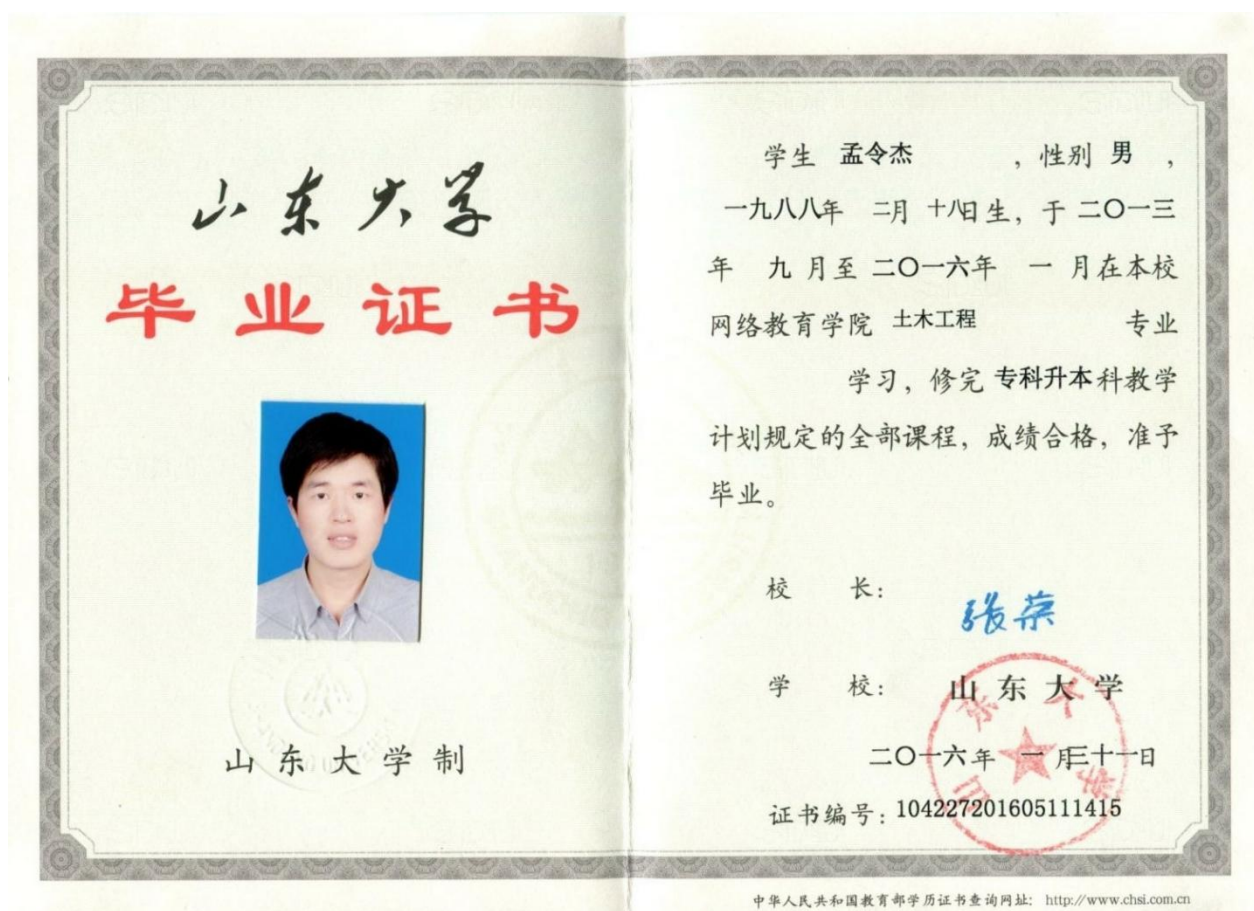 山东大学
毕业证书
山东大学制
学生 孟令杰 ，性别 男 ，
一九八八年 二月 十八日生，于 二〇一三
年 九 月至 二〇一六年 一 月在本校
网络教育学院 土木工程 专业
学习，修完 专科升本科教学
计划规定的全部课程，成绩合格，准予
毕业。
校 长：
张荣
学 校： 山东大学
山东大学
二〇一六年 一月三十一日
证书编号：104227201605111415
中华人民共和国教育部学历证书查询网址： http://www.chsi.com.cn